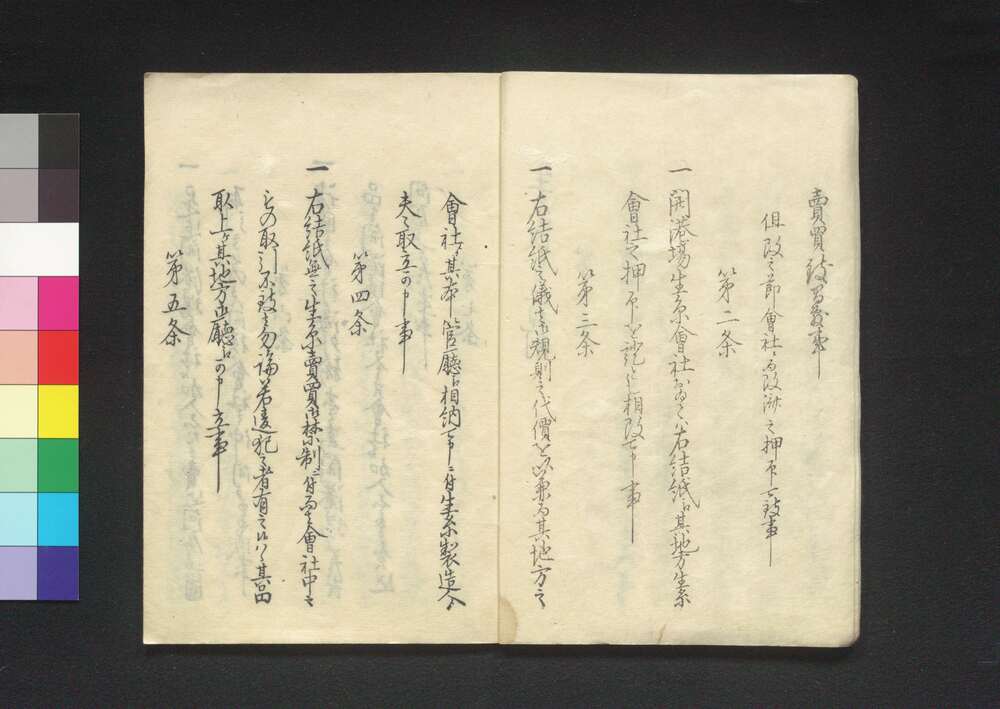 賣買致間敷事
但改之節會社ニ而改済之押印可致事
第二条
一 開港場生糸會社おゐても右結紙江其地方生糸
會社之押印を證とし相改可申事
第三条
一 右結紙之儀者御規則之代價を以兼而其地方之
會社ゟ其本管廳江相納可申ニ付生糸製造人ゟ
夫々取立可申事
第四条
一 右結紙無之生糸賣買御禁制ニ付而者會社中ニ
其取引不致者勿論若違犯之者有之候ハヽ其品
取上ケ其地方御廳江可申立事
第五条